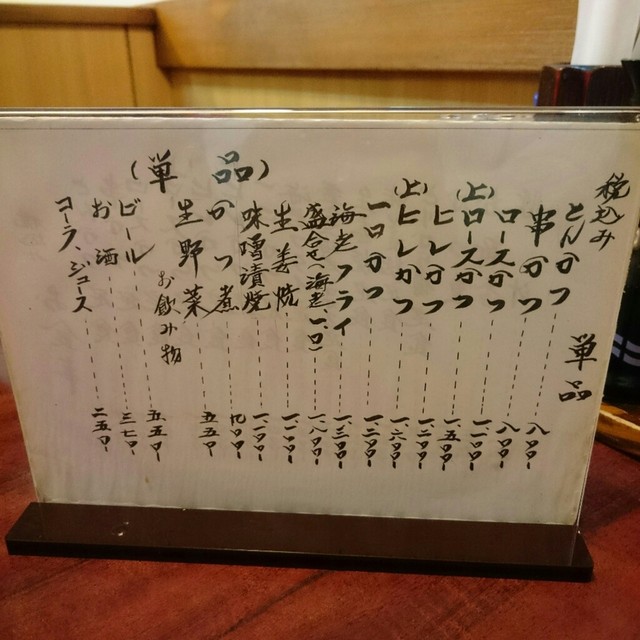 税込み
単品
とんかつ 八〇〇-
串かつ 八〇〇-
ロースかつ 一一〇〇-
(上)ロースかつ 一五〇〇-
ヒレかつ 一二〇〇-
(上)ヒレかつ 一、六〇〇-
一口かつ 一二〇〇-
海老フライ 一、三〇〇-
盛合せ(海老、一口) 一、八〇〇-
(単品)
生姜焼 一一〇〇-
味噌漬焼 一一〇〇-
かつ煮 九〇〇-
生野菜 五五〇-
お飲み物
ビール 五五〇-
お酒 三七〇-
コーラ、ジュース 二五〇-